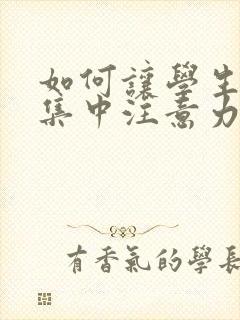 如何讓學生
集中注意力
有香氣的學長